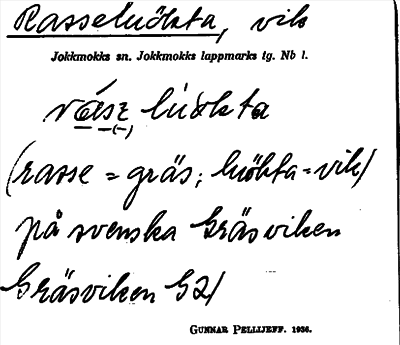 Rasseluökta, vik
Jokkmokks sn. Jokkmokks lappmarks tg. Nb l.
rász luokta
(rasse = gräs; luökta = vik)
på svenska Gräsviken
Gräsviken G2/
GUNNAR PELLIJEFF. 1936.